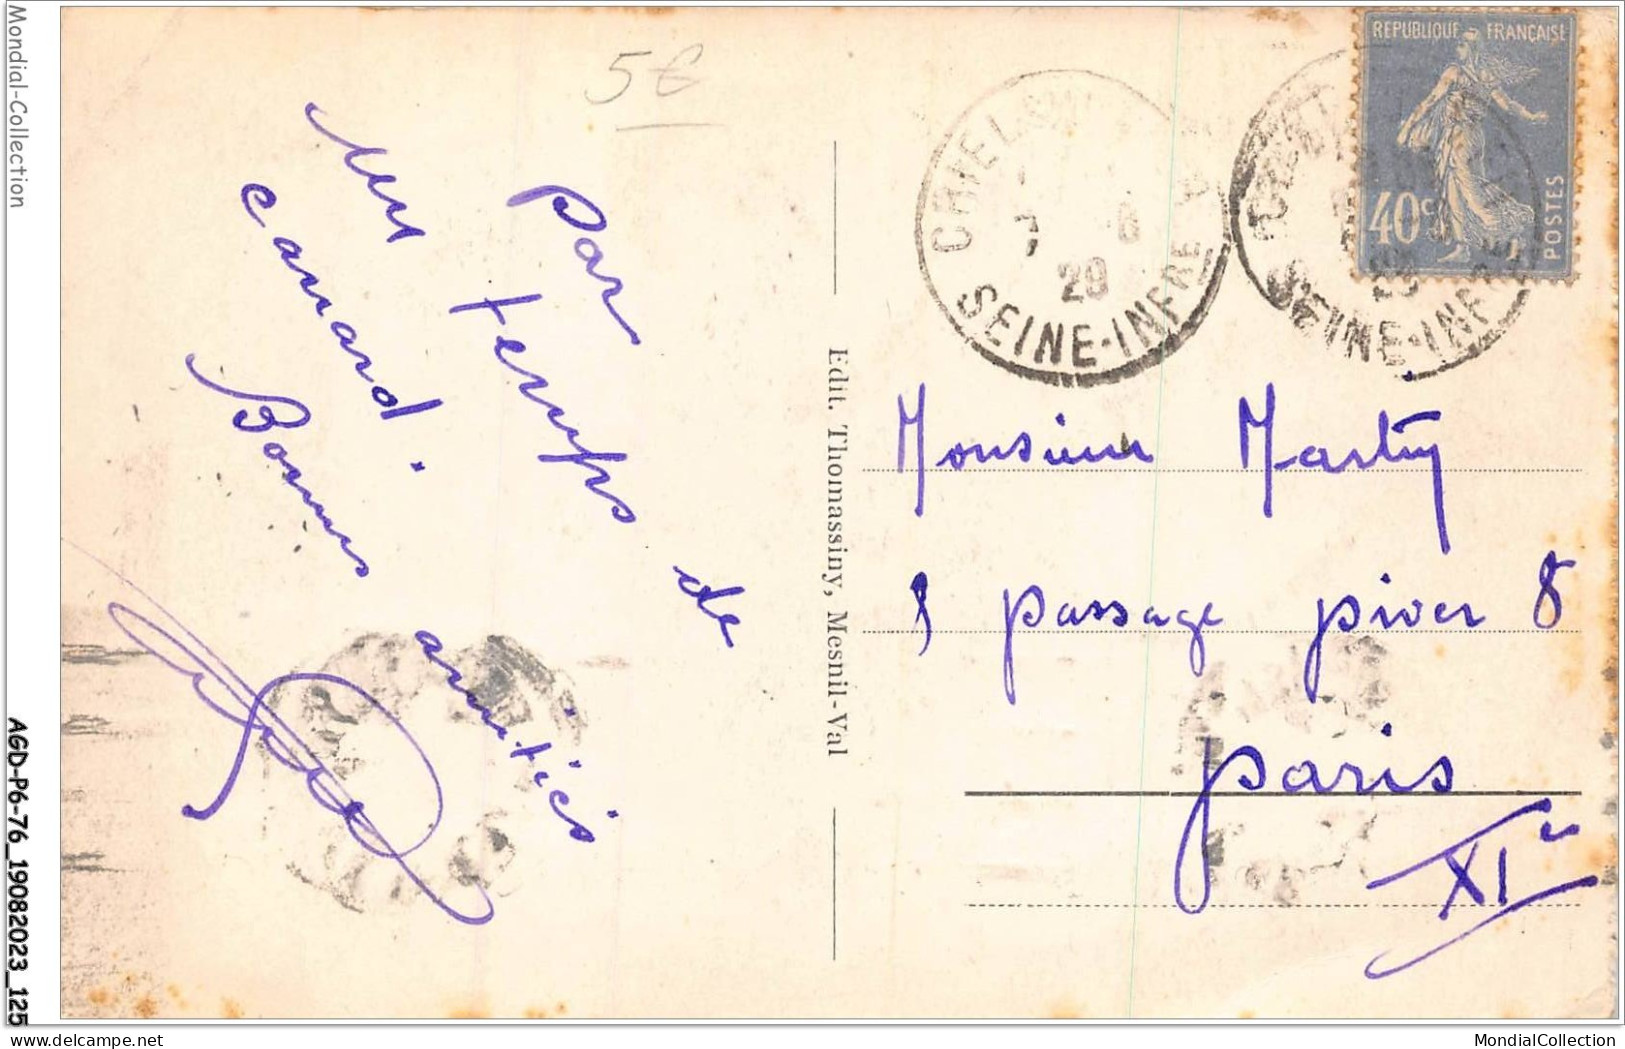 Mondial-Collection
5€
RÉPUBLIQUE FRANÇAISE
40c
POSTES
CRIEL
7 8
29
SEINE-INFRE
SEINE-INFRE
Par
un temps de
canard.
Bonnes amitiés
Edit. Thomassiny, Mesnil-Val
Monsieur Martiny
8 passage piver 8
Paris
XIe
AGD-P6-76_19082023_125
www.delcampe.net
MondialCollection